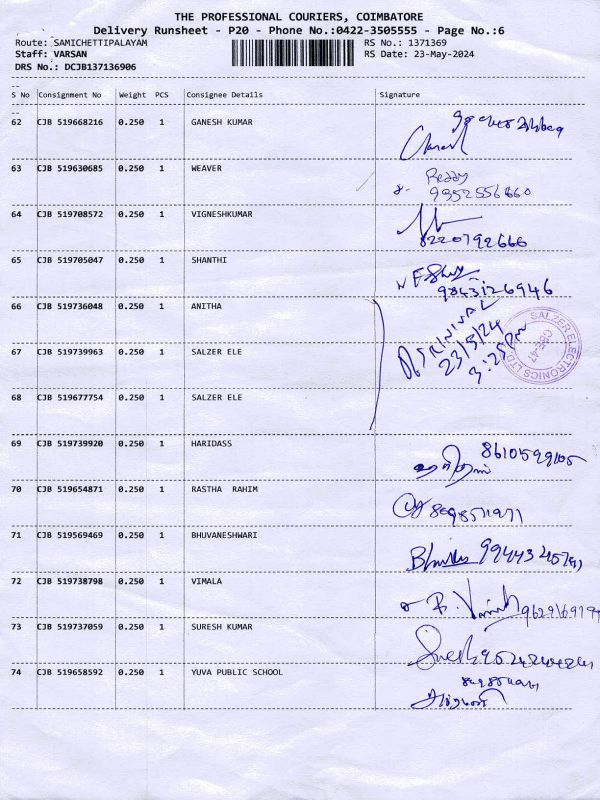 THE PROFESSIONAL COURIERS, COIMBATORE
Delivery Runsheet - P20 - Phone No.:0422-3505555 - Page No.:6
Route: SAMICHETTIPALAYAM
RS No.: 1371369
Staff: VARSAN
RS Date: 23-May-2024
DRS No.: DCJB137136906
--
S No Consignment No Weight PCS Consignee Details Signature
--
62 CJB 519668216 0.250 1 GANESH KUMAR
63 CJB 519630685 0.250 1 WEAVER
Reddy
9952556660
64 CJB 519708572 0.250 1 VIGNESHKUMAR
8220792666
65 CJB 519705047 0.250 1 SHANTHI
9843126946
66 CJB 519736048 0.250 1 ANITHA
SRINIVAL
23/5/24
3:25pm
SALZER ELECTRONICS LTD.
CBE-47
67 CJB 519739963 0.250 1 SALZER ELE
68 CJB 519677754 0.250 1 SALZER ELE
69 CJB 519739920 0.250 1 HARIDASS
8610599105
70 CJB 519654871 0.250 1 RASTHA RAHIM
71 CJB 519569469 0.250 1 BHUVANESHWARI
72 CJB 519738798 0.250 1 VIMALA
73 CJB 519737059 0.250 1 SURESH KUMAR
74 CJB 519658592 0.250 1 YUVA PUBLIC SCHOOL